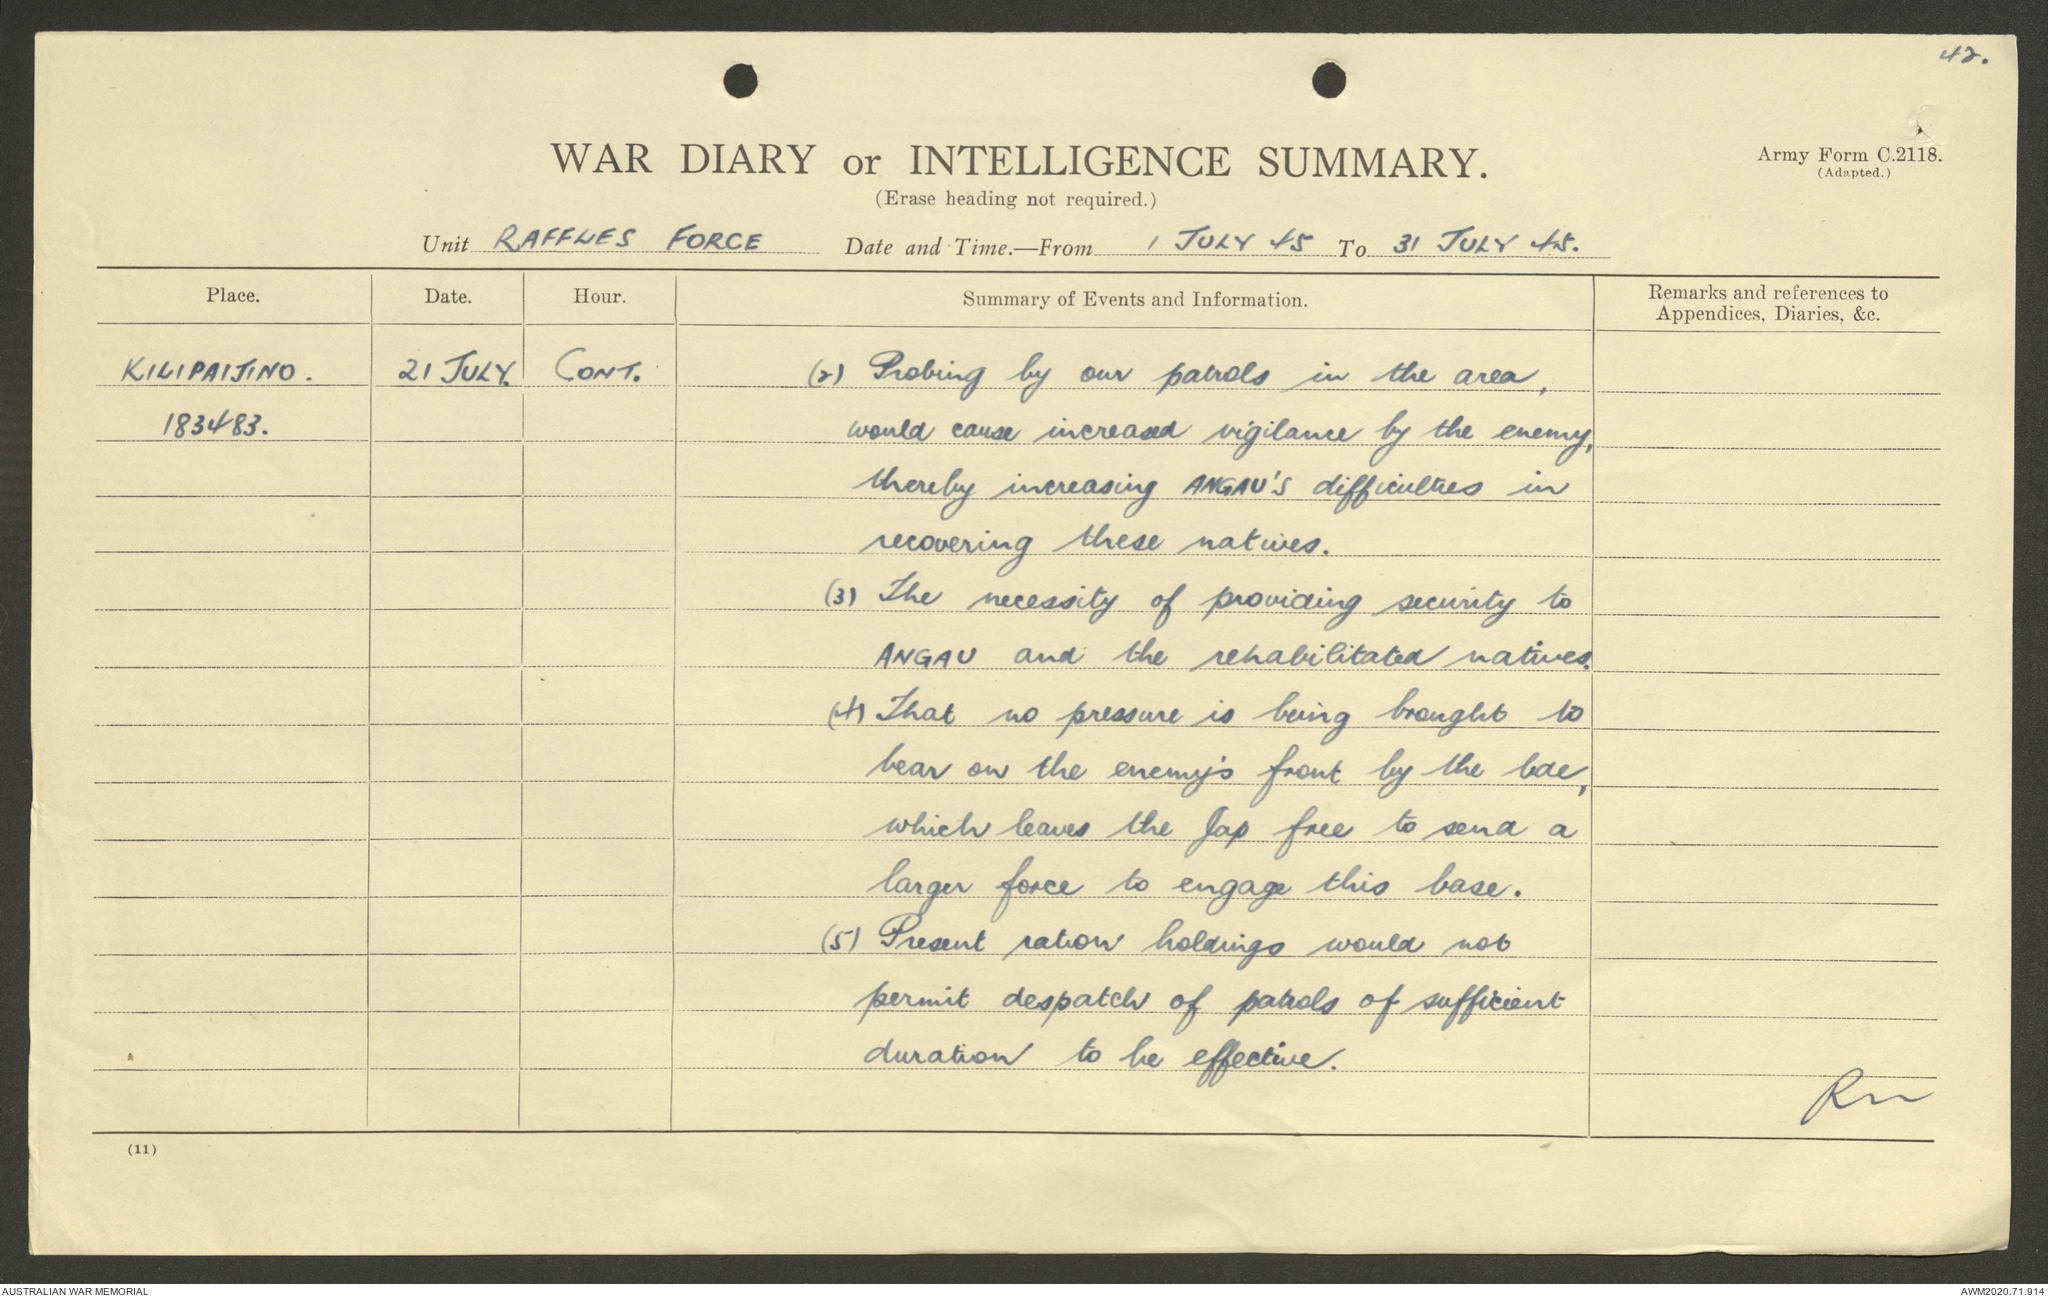 42.
WAR DIARY or INTELLIGENCE SUMMARY.
Army Form C.2118.
(Adapted.)
(Erase heading not required.)
Unit RAFFLES FORCE Date and Time.—From 1 JULY 45 To 31 JULY 45.
Place. Date. Hour. Summary of Events and Information. Remarks and references to
Appendices, Diaries, &c.
KILIPAIJINO. 21 JULY. CONT. (2) Probing by our patrols in the area,
183483. would cause increased vigilance by the enemy,
thereby increasing ANGAU'S difficulties in
recovering these natives.
(3) The necessity of providing security to
ANGAU and the rehabilitated natives.
(4) That no pressure is being brought to
bear on the enemy's front by the bde,
which leaves the Jap free to send a
larger force to engage this base.
(5) Present ration holdings would not
permit despatch of patrols of sufficient
duration to be effective.
(11)
AUSTRALIAN WAR MEMORIAL
AWM2020.71.914